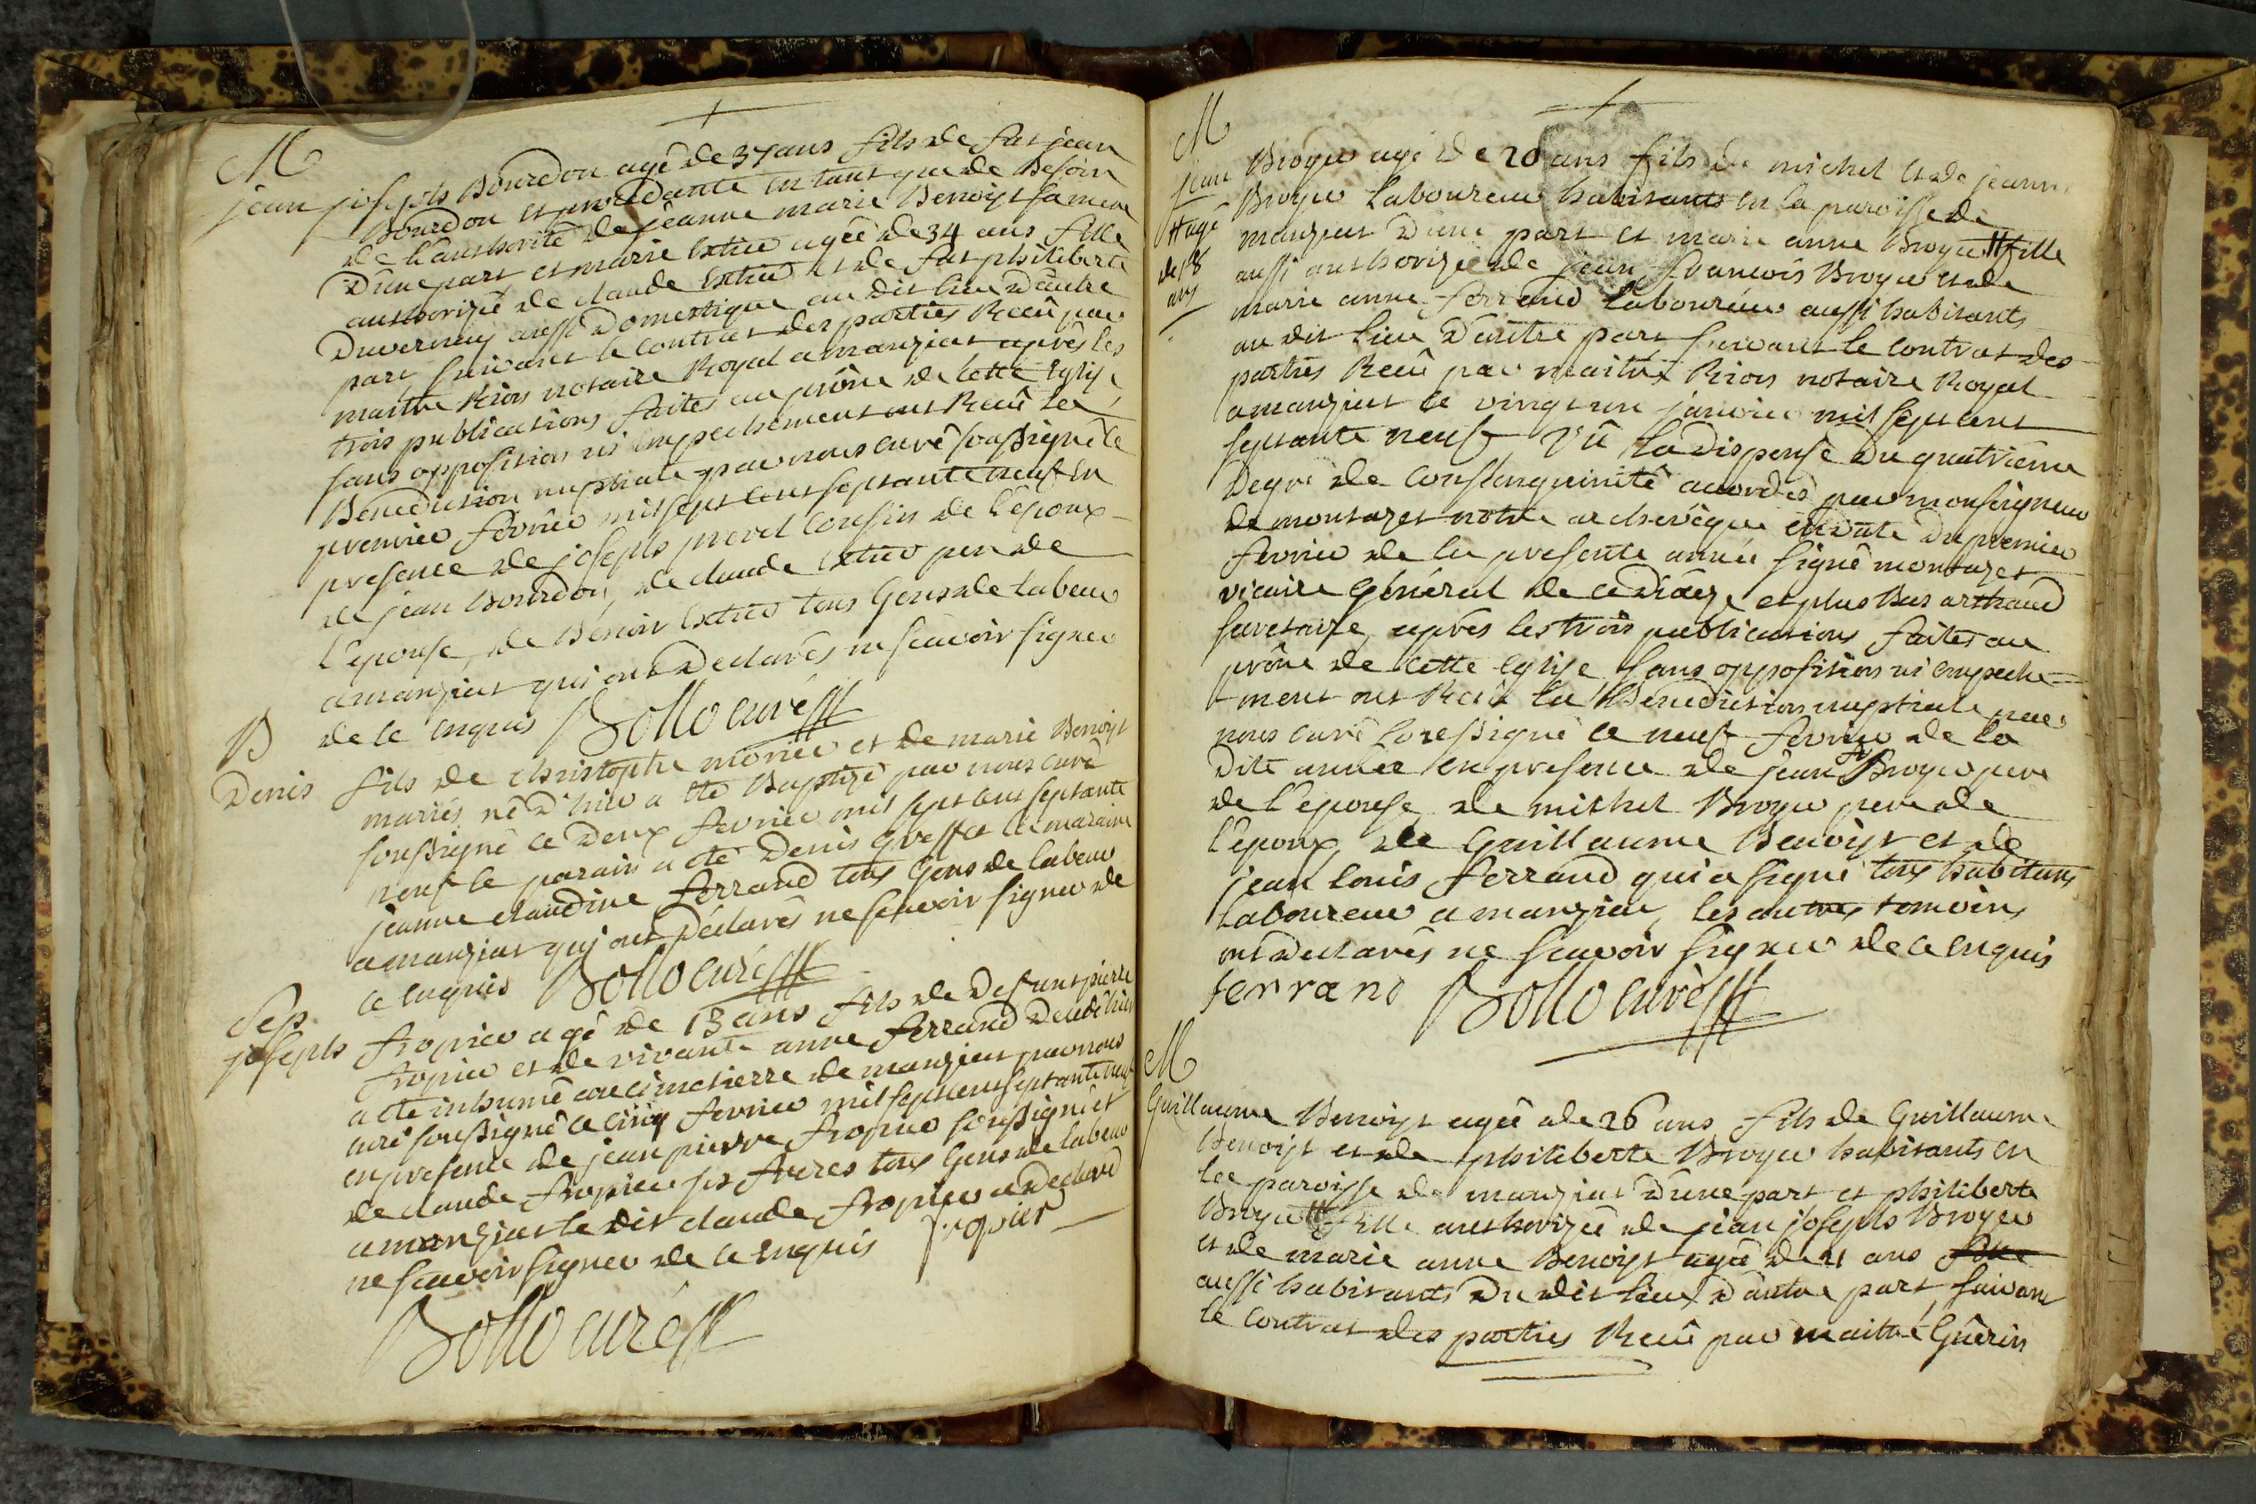 M
jean joseph Bourdon agé de 37 ans fils de fut jean
Bourdon et procedante en tant que de Besoin
de l'authorité de jeanne marie Benoist sa mere
D'une part et marie agée de 34 ans fille
authorizée de claude et de fut philiberte
Duvernay aussi Domestique au dit lieu D'autre
part suivant le contrat des parties Receû par
maitre Riois notaire Royal a manziat après les
trois publications faites au prône de cette Eglise
sans opposition ni empechement ont Recû la
Benediction nuptiale par nous curé soussigné le
premier fevrier mil sept cent septante neuf en
presence de joseph prevel cousin de l'epoux
de jean Bourdon, de claude pere de
l'epouse, de Benoit tous Gens de labeur
a manziat qui ont Declarés ne scavoir signer
de ce enquis Bollo curé
B
Denis fils de christophe monier et de marie Benoist
mariés né D'hier a été Baptizé par nous curé
soussigné ce Deux fevrier mil sept cent septante
neuf le parain a eté Denis et la maraine
jeanne claudine ferrand tous Gens de labeur
a manziat qui ont Déclarés ne scavoir signer de
ce enquis Bollo curé
Sep.
joseph fropier agé de 13 ans fils de Defunt pierre
fropier et de vivante anne ferrand Decedé hier
a été inhumé au cimetierre de manziat par nous
curé soussigné ce cinq fevrier mil sept cent septante neuf
en presence de jean pierre fropier soussigné et
de claude fropier ses freres tous Gens de labeur
a manziat le dit claude fropier a Declaré
ne scavoir signer de ce enquis fropier
Bollo curé
M
jean Broyer agé de 20 ans fils de michel et de jeanne
Broyer Laboureur habitants en la paroisse de
manziat D'une part et marie anne Broyer # fille
# agé
de 18
ans
aussi authorizée de jean francois Broyer et de
marie anne ferrand laboureur aussi habitants
au dit lieu D'autre part suivant le contrat des
parties Receû par maitre Riois notaire Royal
a manziat le vingt un janvier mil sept cent
septante neuf Vû la dispense Du quatrieme
Degré de consanguinité accordée par monseigneur
de montazet notre archevêque en date Du premier
fevrier de la presente année signé montazet
vicaire général de ce diôceze et plus Bas arthaud
secretaire, après les trois publications faites au
prône de cette eglise sans opposition ni empeche=
=ment ont Recû la Benediction nuptiale par
nous curé soussigné ce neuf fevrier de la
Dite année en presence de jean Broyer pere
de l'epouse, de michel Broyer pere de
l'epoux, de Guillaume Benoist et de
jean louis ferrand qui a signé tous habitans
Laboureur a manziat, les autres temoins
ont Declarés ne scavoir signer de ce enquis
ferrand Bollo curé
M
Guillaume Benoist agée de 26 ans fils de Guillaume
Benoist et de philiberte Broyer habitants en
la paroisse de manziat D'une part et philiberte
Broyer fille authorizée de jean joseph Broyer
et de marie anne Benoist agée de 21 ans fille
aussi habitants Du dit lieu D'autre part suivant
le contrat des parties Receû par maitre Guérin